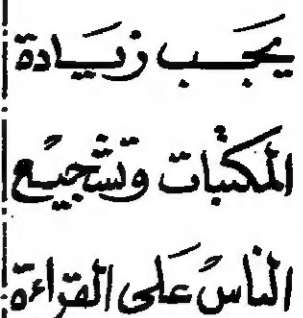 يجب زيادة
المكتبات وتشجيع
الناس على القراءة